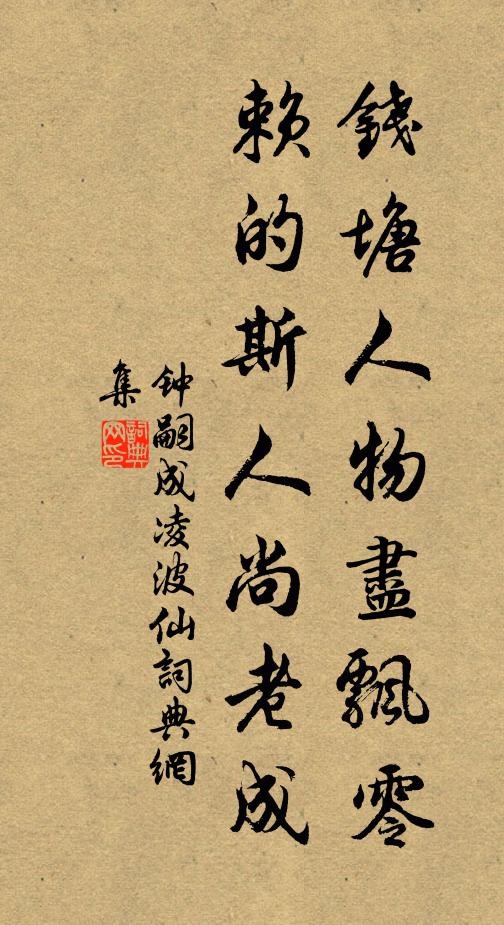 錢塘人物盡飄零
賴的斯人尚老成
鈡嗣成凌波仙詞典網
集
詞典
网印